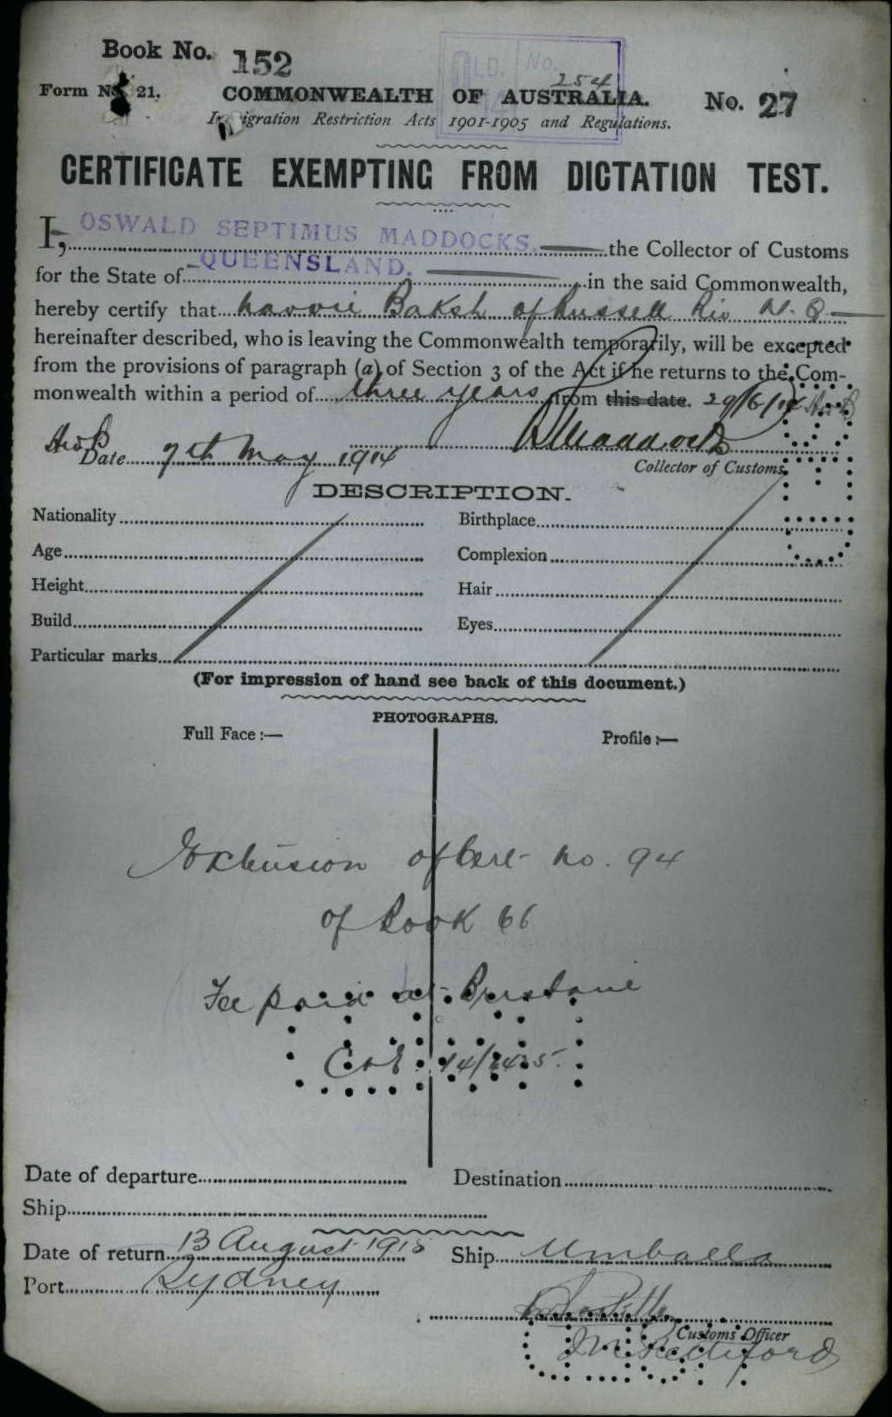 Book No. 152
QLD. No.
254
Form No. 21. COMMONWEALTH OF AUSTRALIA. No. 27
Immigration Restriction Acts 1901-1905 and Regulations.
CERTIFICATE EXEMPTING FROM DICTATION TEST.
I, OSWALD SEPTIMUS MADDOCKS. the Collector of Customs
for the State of QUEENSLAND. in the said Commonwealth,
hereby certify that Baksh of Russell Riv N. Q
hereinafter described, who is leaving the Commonwealth temporarily, will be excepted
from the provisions of paragraph (a) of Section 3 of the Act if he returns to the Com-
monwealth within a period of three years from this date. 29/6/14
Date 7th May 1914
Collector of Customs.
DESCRIPTION.
Nationality Birthplace
Age Complexion
Height Hair
Build Eyes
Particular marks
(For impression of hand see back of this document.)
PHOTOGRAPHS.
Full Face :— Profile :—
of Cert no. 94
of Book 66
Fee paid at Brisbane
Date of departure Destination
Ship
Date of return 13 August 1915 Ship Umballa
Port Sydney
Customs Officer